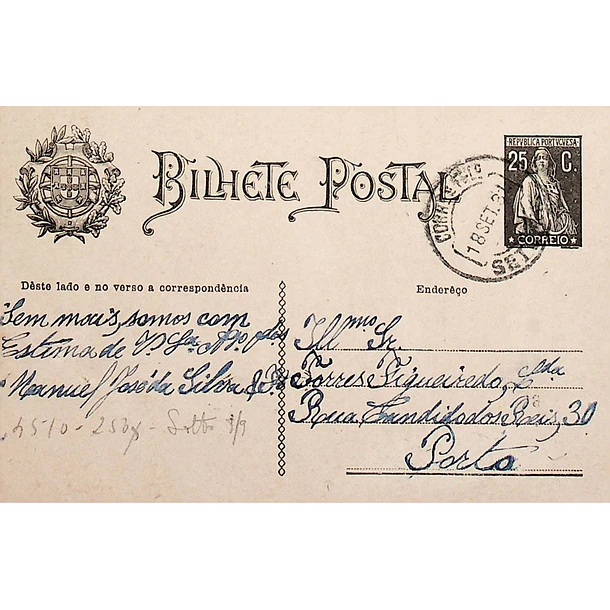 BILHETE POSTAL
REPVBLICA PORTVGVESA
25 C.
CORREIO
CORREIO
18 SET. 31
SET
Dêste lado e no verso a correspondência
Enderêço
Sem mais, somos com
Estima de V. Sas
Manuel José da Silva &
Illmo Sr.
Torres Figueiredo, Cda
Rua Candido dos Reis, 30
Porto